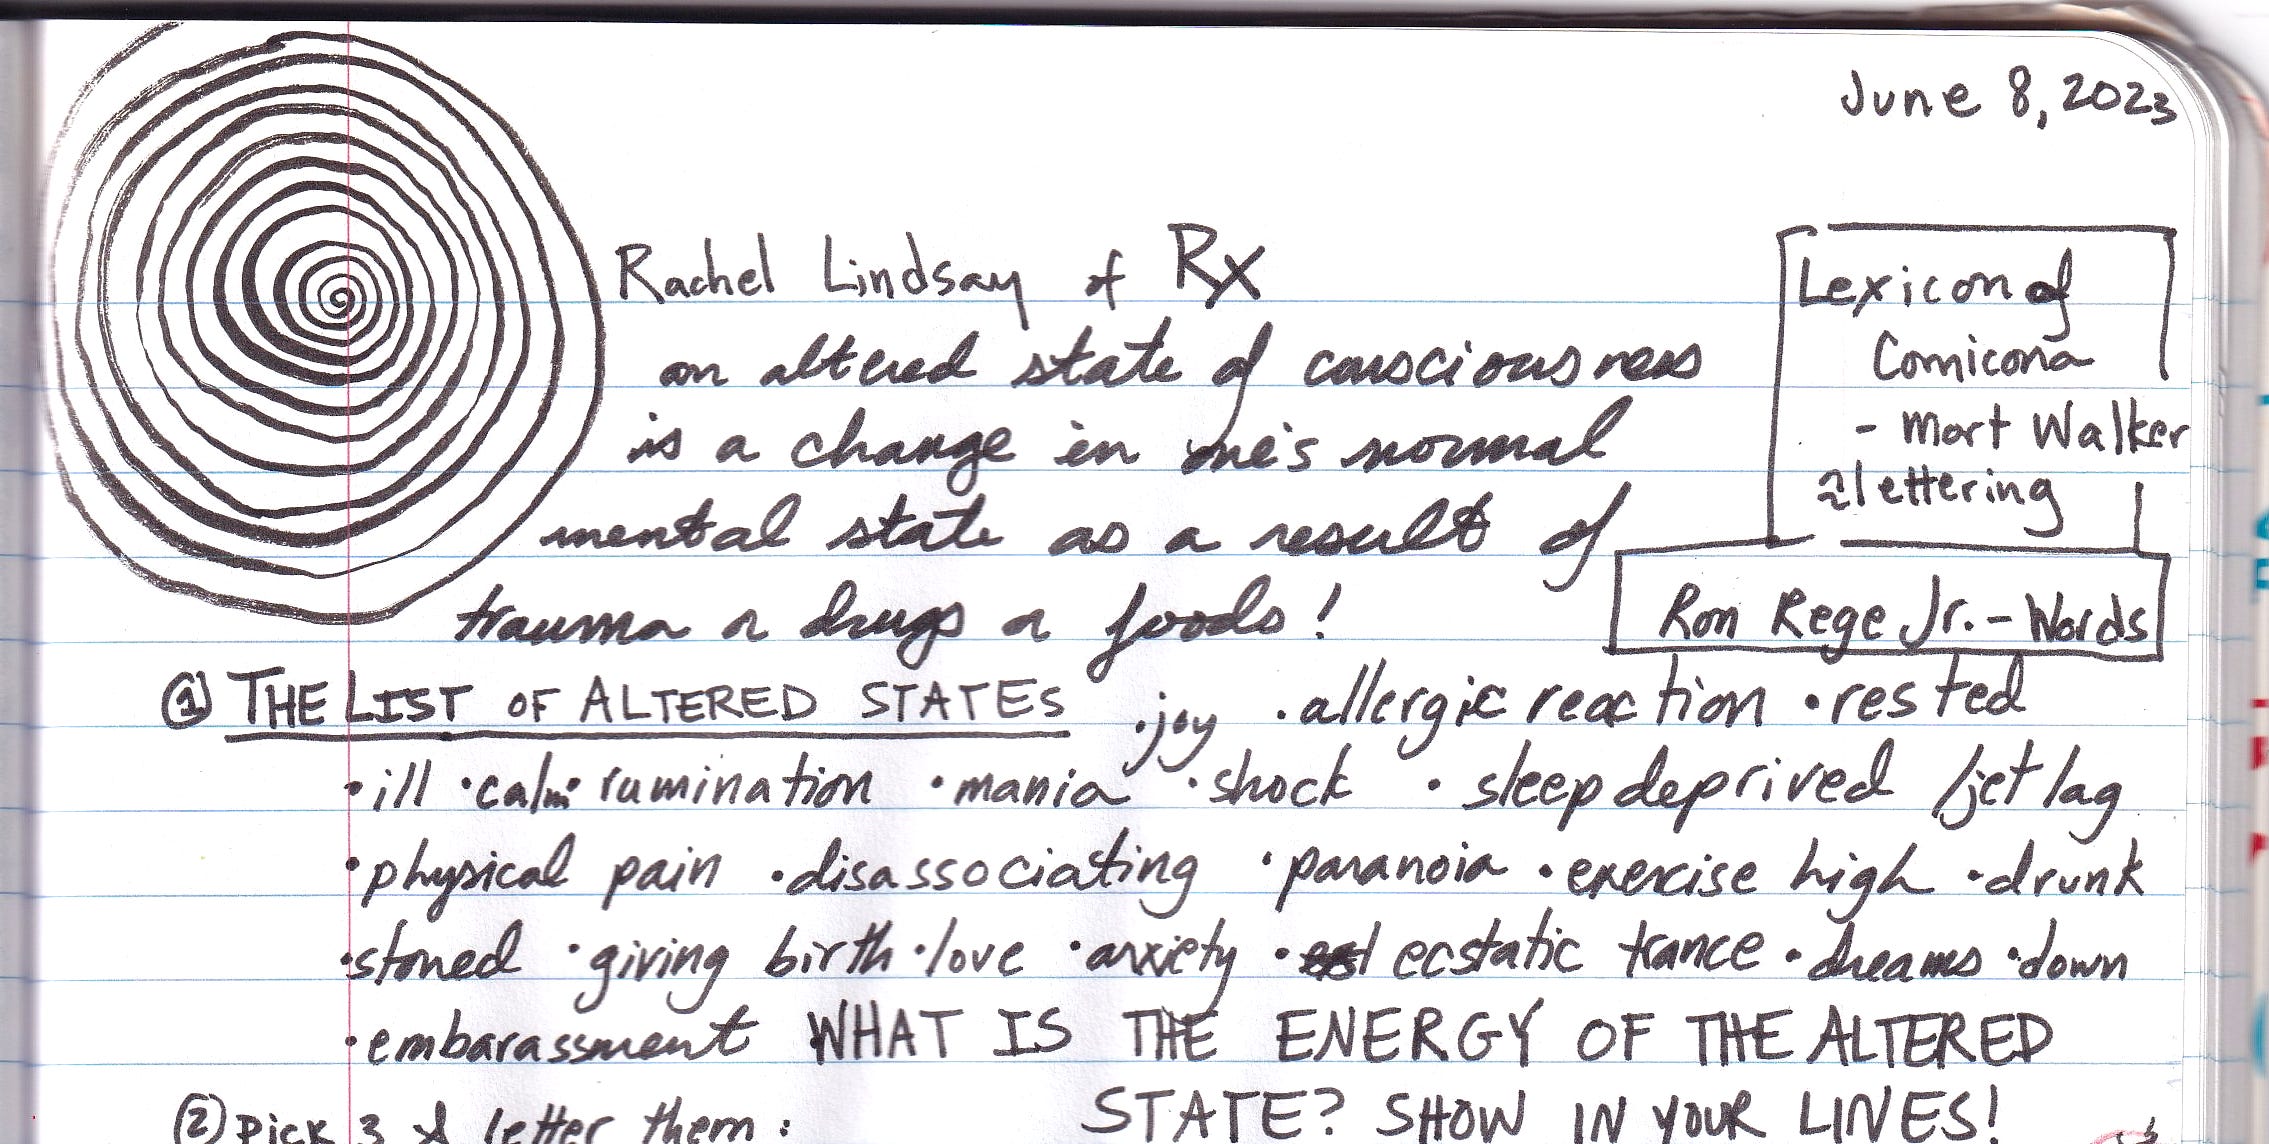 June 8, 2023
Rachel Lindsay of Rx
an altered state of consciousness
is a change in one's normal
mental state as a result of
trauma or drugs or foods!
Lexicon of
Comicana
- Mort Walker
lettering
Ron Rege Jr. - Words
① THE LIST OF ALTERED STATES · joy · allergic reaction · rested
· ill · calm · rumination · mania · shock · sleep deprived / jet lag
· physical pain · disassociating · paranoia · exercise high · drunk
· stoned · giving birth · love · anxiety · ecstatic trance · dreams · down
· embarassment WHAT IS THE ENERGY OF THE ALTERED
STATE? SHOW IN YOUR LINES!
② Pick 3 & letter them: